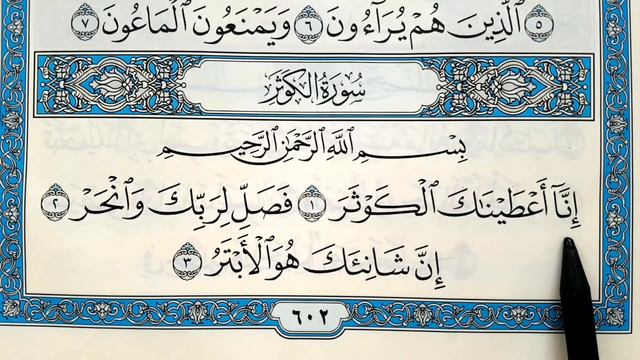 ٥ ٱلَّذِينَ هُمْ يُرَآءُونَ ٦ وَيَمْنَعُونَ ٱلْمَاعُونَ ٧
سُورَةُ الكَوْثَرِ
بِسْمِ ٱللَّهِ ٱلرَّحْمَٰنِ ٱلرَّحِيمِ
إِنَّآ أَعْطَيْنَٰكَ ٱلْكَوْثَرَ ١ فَصَلِّ لِرَبِّكَ وَٱنْحَرْ ٢
إِنَّ شَانِئَكَ هُوَ ٱلْأَبْتَرُ ٣
٦٠٢